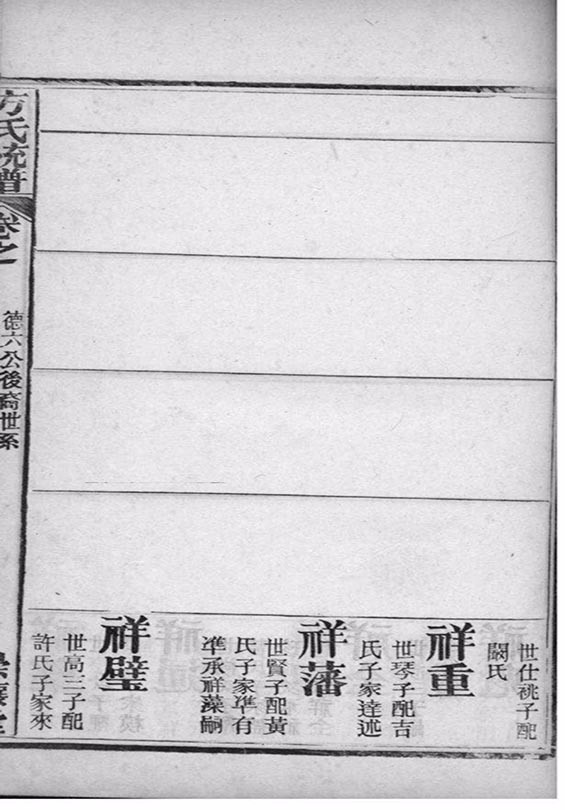 世仕祧子配
闕氏
祥重
世琴子配吉
氏子家達述
祥藩
世賢子配黃
氏子家準有
準承祥藻嗣
祥璧
世高三子配
許氏子家來
方氏統譜
卷之
德六公後裔世系